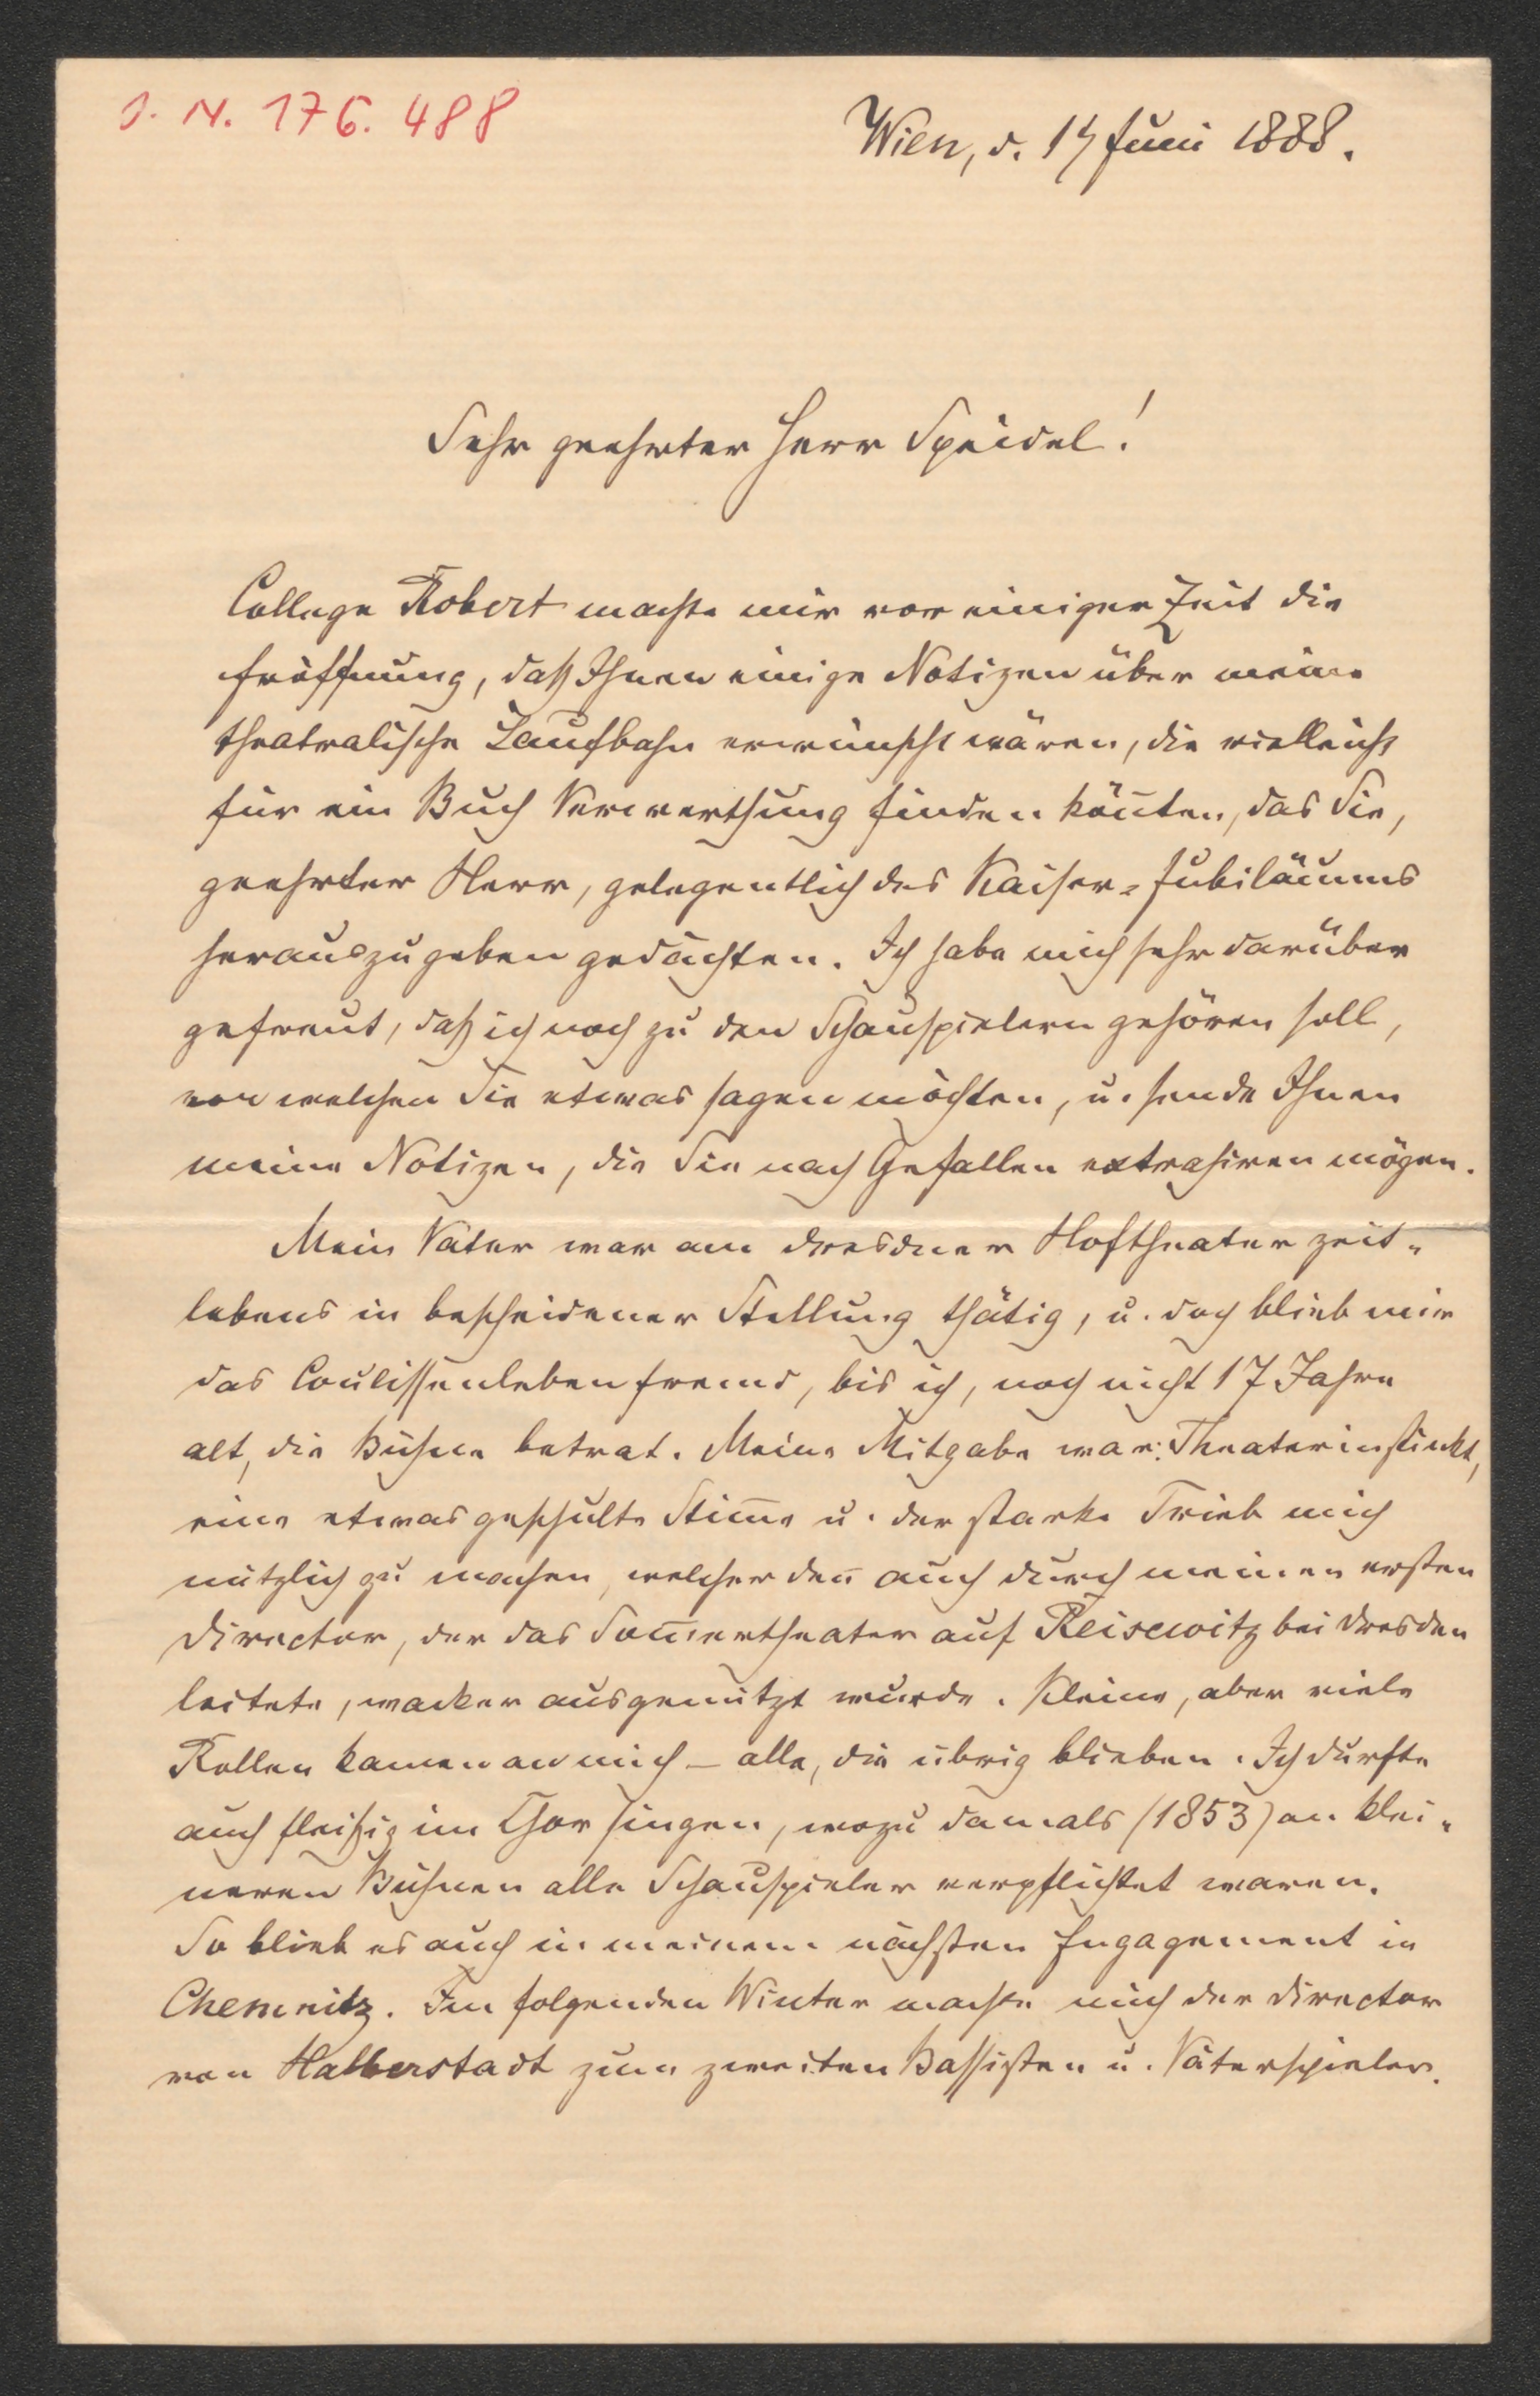 J. N. 176.488
Wien, d. 14 Juni 1888.
Sehr geehrter Herr Speidel!
College Robert machte mir vor einiger Zeit die
Eröffnung, daß Ihnen einige Notizen über meine
theatralische Laufbahn erwünscht wären, die vielleicht
für ein Buch Verwerthung finden kön̄ten, das Sie,
geehrter Herr, gelegentlich des Kaiser-Jubiläums
herauszugeben gedächten. Ich habe mich sehr darüber
gefreut, daß ich noch zu den Schauspielern gehören soll,
von welchen Sie etwas sagen möchten, u. sende Ihnen
meine Notizen, die Sie nach Gefallen extrahiren mögen.
Mein Vater war am dresdner Hoftheater zeit-
lebens in bescheidener Stellung thätig, u. doch blieb mir
das Coulissenleben fremd, bis ich, noch nicht 17 Jahre
alt, die Bühne betrat. Meine Mitgabe war: Theaterinstinkt,
eine etwas geschulte Stim̄e u. der starke Trieb mich
nützlich zu machen, welcher den̄ auch durch meinen ersten
Director, der das Som̄ertheater auf Reisewitz bei Dresden
leitete, wacker ausgenützt wurde. Kleine, aber viele
Rollen kamen an mich – alle, die übrig blieben. Ich durfte
auch fleißig im Chor singen, wozu damals (1853) an klei-
neren Bühnen alle Schauspieler verpflichtet waren.
So blieb es auch in meinem nächsten Engagement in
Chemnitz. Im folgenden Winter machte mich der Director
von Halberstadt zum zweiten Bassisten u. Väterspieler.